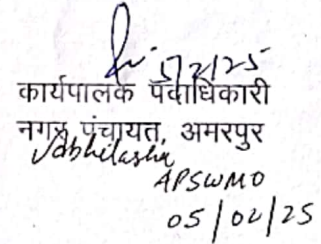 5/2/25
कार्यपालक पदाधिकारी
नगर पंचायत, अमरपुर
Abhilasha
APSWMO
05/02/25